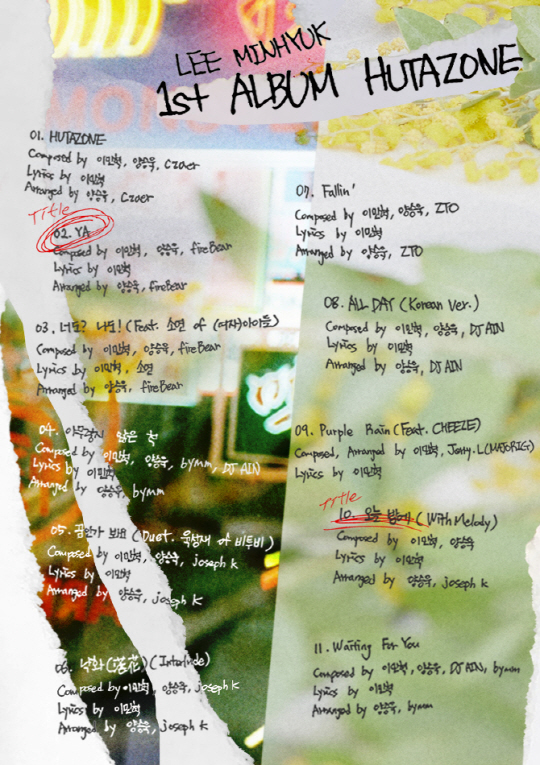 LEE MINHYUK
1st ALBUM HUTAZONE
01. HUTAZONE
Composed by 이민혁, 양승욱, Czaer
Lyrics by 이민혁
Arranged by 양승욱, Czaer
Title
02. YA
Composed by 이민혁, 양승욱, fireBear
Lyrics by 이민혁
Arranged by 양승욱, fireBear
03. 너도? 나도! (Feat. 소연 of (여자)아이들)
Composed by 이민혁, 양승욱, fireBear
Lyrics by 이민혁, 소연
Arranged by 양승욱, fireBear
04. 아무렇지 않은 척
Composed by 이민혁, 양승욱, bymm, DJ AIN
Lyrics by 이민혁
Arranged by 양승욱, bymm
05. 꿈인가 봐요 (Duet. 육성재 of 비투비)
Composed by 이민혁, 양승욱, joseph k
Lyrics by 이민혁
Arranged by 양승욱, joseph k
06. 낙화(落花) (Interlude)
Composed by 이민혁, 양승욱, joseph k
Lyrics by 이민혁
Arranged by 양승욱, joseph k
07. Fallin'
Composed by 이민혁, 양승욱, ZTO
Lyrics by 이민혁
Arranged by 양승욱, ZTO
08. ALL DAY (Korean Ver.)
Composed by 이민혁, 양승욱, DJ AIN
Lyrics by 이민혁
Arranged by 양승욱, DJ AIN
09. Purple Rain (Feat. CHEEZE)
Composed, Arranged by 이민혁, Jerry.L (MAJORIGI)
Lyrics by 이민혁
Title
10. 오늘 밤에 (With Melody)
Composed by 이민혁, 양승욱
Lyrics by 이민혁
Arranged by 양승욱, joseph k
11. Waiting For You
Composed by 이민혁, 양승욱, DJ AIN, bymm
Lyrics by 이민혁
Arranged by 양승욱, bymm